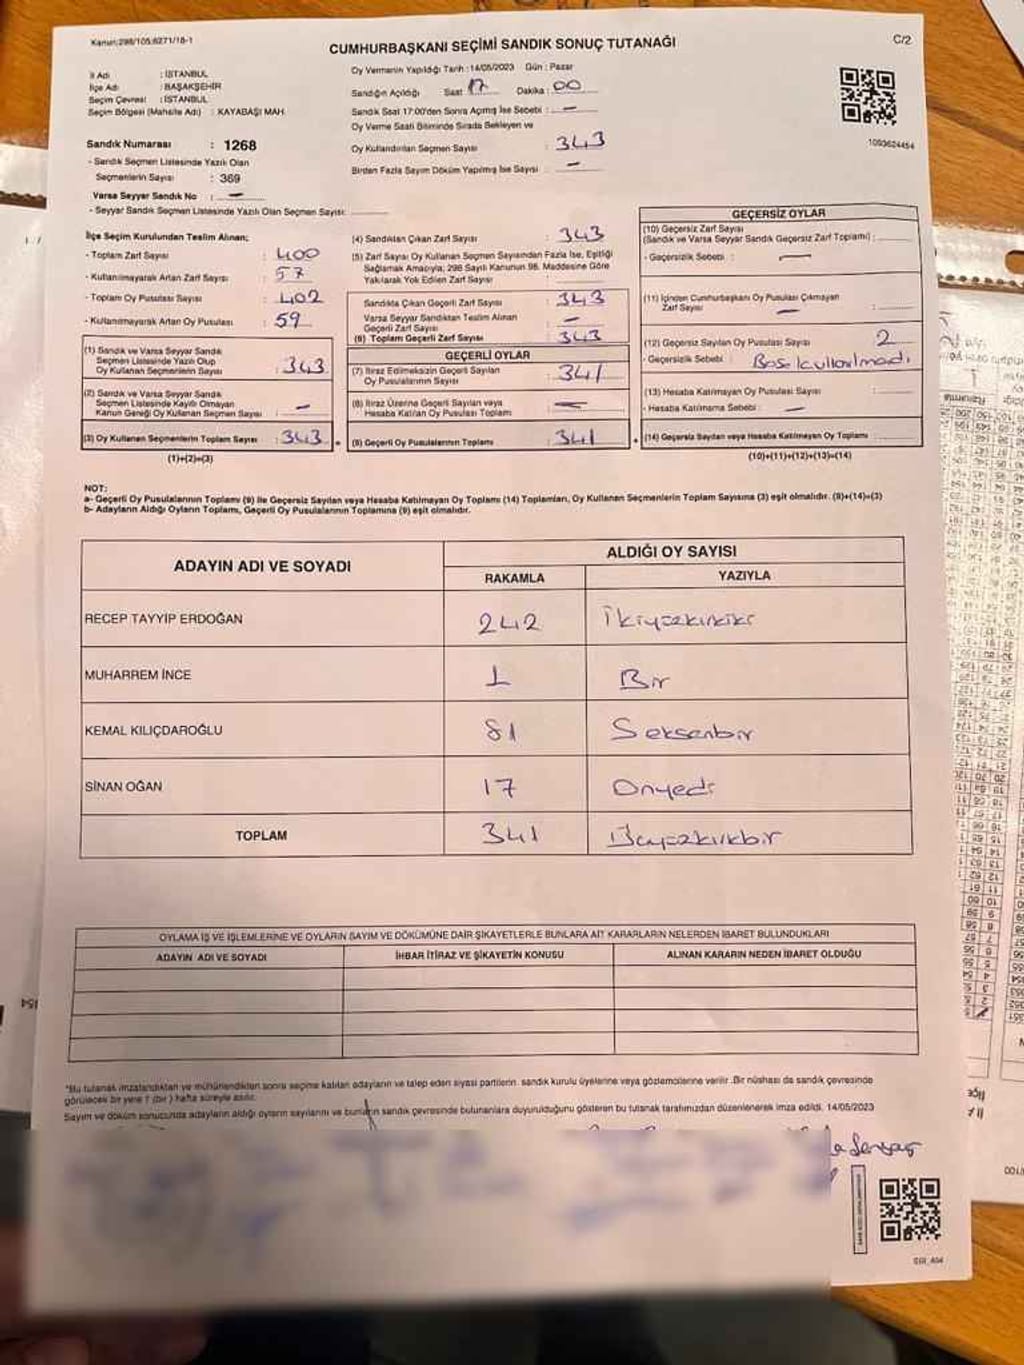 Kanun:298/105;6271/18-1
C/2
CUMHURBAŞKANI SEÇİMİ SANDIK SONUÇ TUTANAĞI
İl Adı : İSTANBUL
İlçe Adı : BAŞAKŞEHİR
Seçim Çevresi : İSTANBUL
Seçim Bölgesi (Mahalle Adı) : KAYABAŞI MAH.
Sandık Numarası : 1268
- Sandık Seçmen Listesinde Yazılı Olan
Seçmenlerin Sayısı : 369
Varsa Seyyar Sandık No : —
- Seyyar Sandık Seçmen Listesinde Yazılı Olan Seçmen Sayısı:
Oy Vermenin Yapıldığı Tarih :14/05/2023 Gün : Pazar
Sandığın Açıldığı Saat 17 Dakika : 00
Sandık Saat 17:00'den Sonra Açmış İse Sebebi : —
Oy Verme Saati Bitiminde Sırada Bekleyen ve
Oy Kullandırılan Seçmen Sayısı : 343
Birden Fazla Sayım Döküm Yapılmış İse Sayısı : —
1093624454
İlçe Seçim Kurulundan Teslim Alınan;
- Toplam Zarf Sayısı : 400
- Kullanılmayarak Artan Zarf Sayısı : 57
- Toplam Oy Pusulası Sayısı : 402
- Kullanılmayarak Artan Oy Pusulası : 59
(1) Sandık ve Varsa Seyyar Sandık
Seçmen Listesinde Yazılı Olup
Oy Kullanan Seçmenlerin Sayısı : 343
(2) Sandık ve Varsa Seyyar Sandık
Seçmen Listesinde Kayıtlı Olmayan
Kanun Gereği Oy Kullanan Seçmen Sayısı : —
(3) Oy Kullanan Seçmenlerin Toplam Sayısı : 343
(1)+(2)=(3)
(4) Sandıktan Çıkan Zarf Sayısı : 343
(5) Zarf Sayısı Oy Kullanan Seçmen Sayısından Fazla İse, Eşitliği
Sağlamak Amacıyla; 298 Sayılı Kanunun 98. Maddesine Göre
Yakılarak Yok Edilen Zarf Sayısı :
Sandıkta Çıkan Geçerli Zarf Sayısı : 343
Varsa Seyyar Sandıktan Teslim Alınan
Geçerli Zarf Sayısı : —
(6) Toplam Geçerli Zarf Sayısı : 343
GEÇERLİ OYLAR
(7) İtiraz Edilmeksizin Geçerli Sayılan
Oy Pusulalarının Sayısı : 341
(8) İtiraz Üzerine Geçerli Sayılan veya
Hesaba Katılan Oy Pusulası Toplamı : —
(9) Geçerli Oy Pusulalarının Toplamı : 341
GEÇERSİZ OYLAR
(10) Geçersiz Zarf Sayısı
(Sandık ve Varsa Seyyar Sandık Geçersiz Zarf Toplamı) :
- Geçersizlik Sebebi : —
(11) İçinden Cumhurbaşkanı Oy Pusulası Çıkmayan
Zarf Sayısı : —
(12) Geçersiz Sayılan Oy Pusulası Sayısı : 2
- Geçersizlik Sebebi : Boş kullanılmadı
(13) Hesaba Katılmayan Oy Pusulası Sayısı :
- Hesaba Katılmama Sebebi : —
(14) Geçersiz Sayılan veya Hesaba Katılmayan Oy Toplamı :
(10)+(11)+(12)+(13)=(14)
NOT:
a- Geçerli Oy Pusulalarının Toplamı (9) ile Geçersiz Sayılan veya Hesaba Katılmayan Oy Toplamı (14) Toplamları, Oy Kullanan Seçmenlerin Toplam Sayısına (3) eşit olmalıdır. (9)+(14)=(3)
b- Adayların Aldığı Oyların Toplamı, Geçerli Oy Pusulalarının Toplamına (9) eşit olmalıdır.
ADAYIN ADI VE SOYADI
ALDIĞI OY SAYISI
RAKAMLA YAZIYLA
RECEP TAYYİP ERDOĞAN 242 İkiyüzkırkiki
MUHARREM İNCE 1 Bir
KEMAL KILIÇDAROĞLU 81 Seksenbir
SİNAN OĞAN 17 Onyedi
TOPLAM 341 Üçyüzkırkbir
OYLAMA İŞ VE İŞLEMLERİNE VE OYLARIN SAYIM VE DÖKÜMÜNE DAİR ŞİKAYETLERLE BUNLARA AİT KARARLARIN NELERDEN İBARET BULUNDUKLARI
ADAYIN ADI VE SOYADI İHBAR İTİRAZ VE ŞİKAYETİN KONUSU ALINAN KARARIN NEDEN İBARET OLDUĞU
*Bu tutanak imzalandıktan ve mühürlendikten sonra seçime katılan adayların ve talep eden siyasi partilerin sandık kurulu üyelerine veya gözlemcilerine verilir. Bir nüshası da sandık çevresinde
görülecek bir yere 1 (bir) hafta süreyle asılır.
Sayım ve döküm sonucunda adayların aldığı oyların sayılarını ve bunların sandık çevresinde bulunanlara duyurulduğunu gösteren bu tutanak tarafımızdan düzenlenerek imza edildi. 14/05/2023